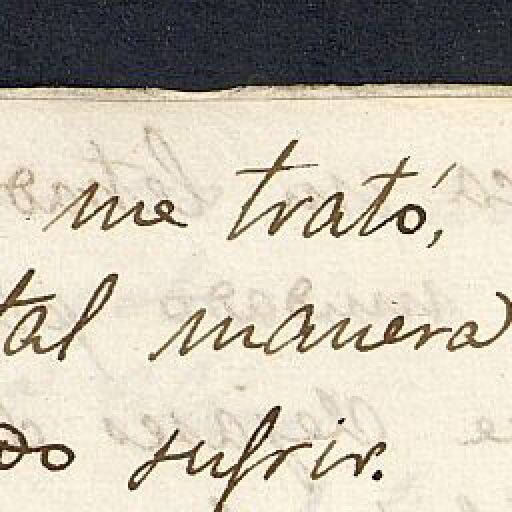 me trató,
tal manera
do sufrir.